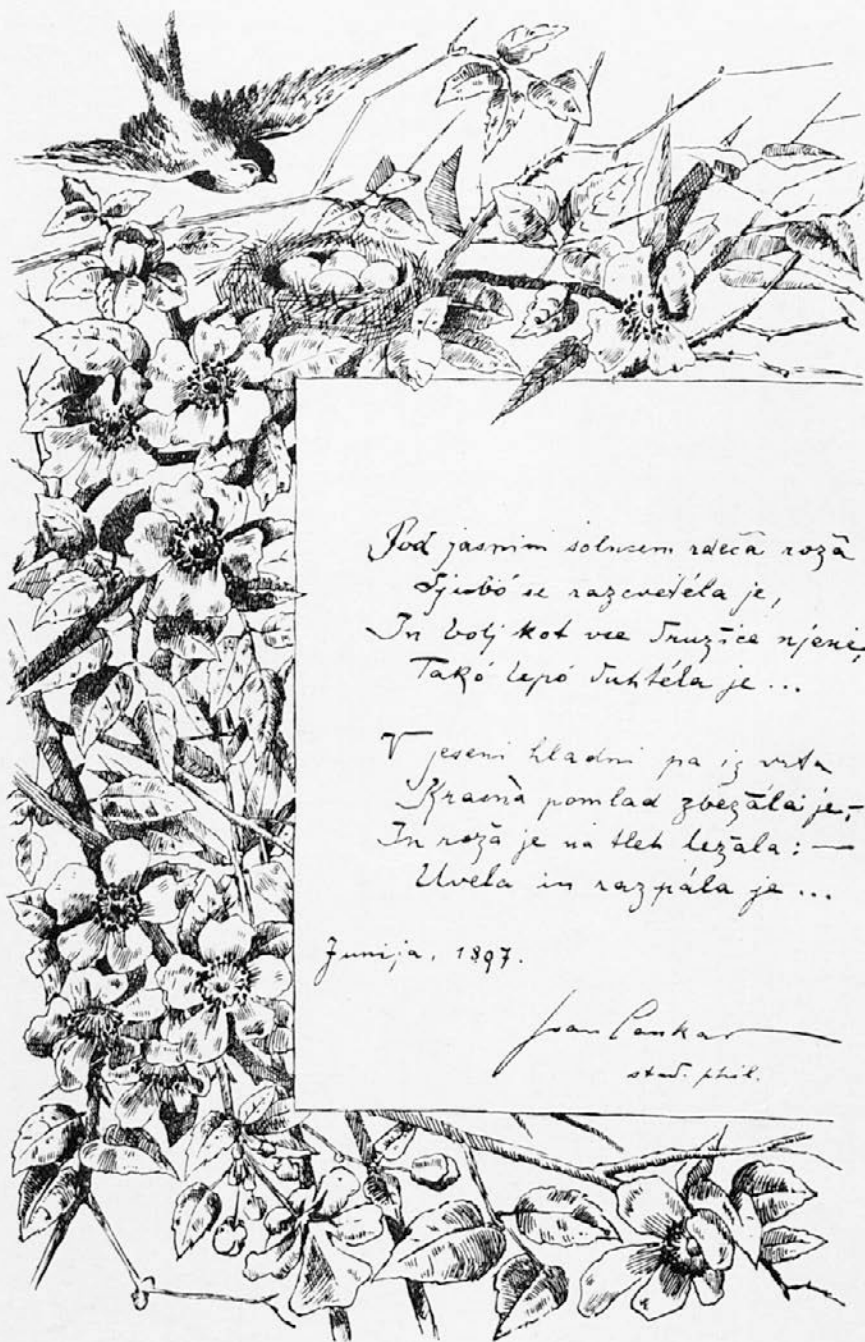 Pod jasnim solncem rdeča roža
Ljubó se razcvetéla je,
In bolj kot vse družice njene,
Takó lepó duhtéla je ...
V jeseni hladni pa iz vrta
Krasná pomlad zbežála je,—
In roža je na tleh ležala: —
Uvela in razpála je ...
Junija, 1897.
Ivan Cankar
stud. phil.